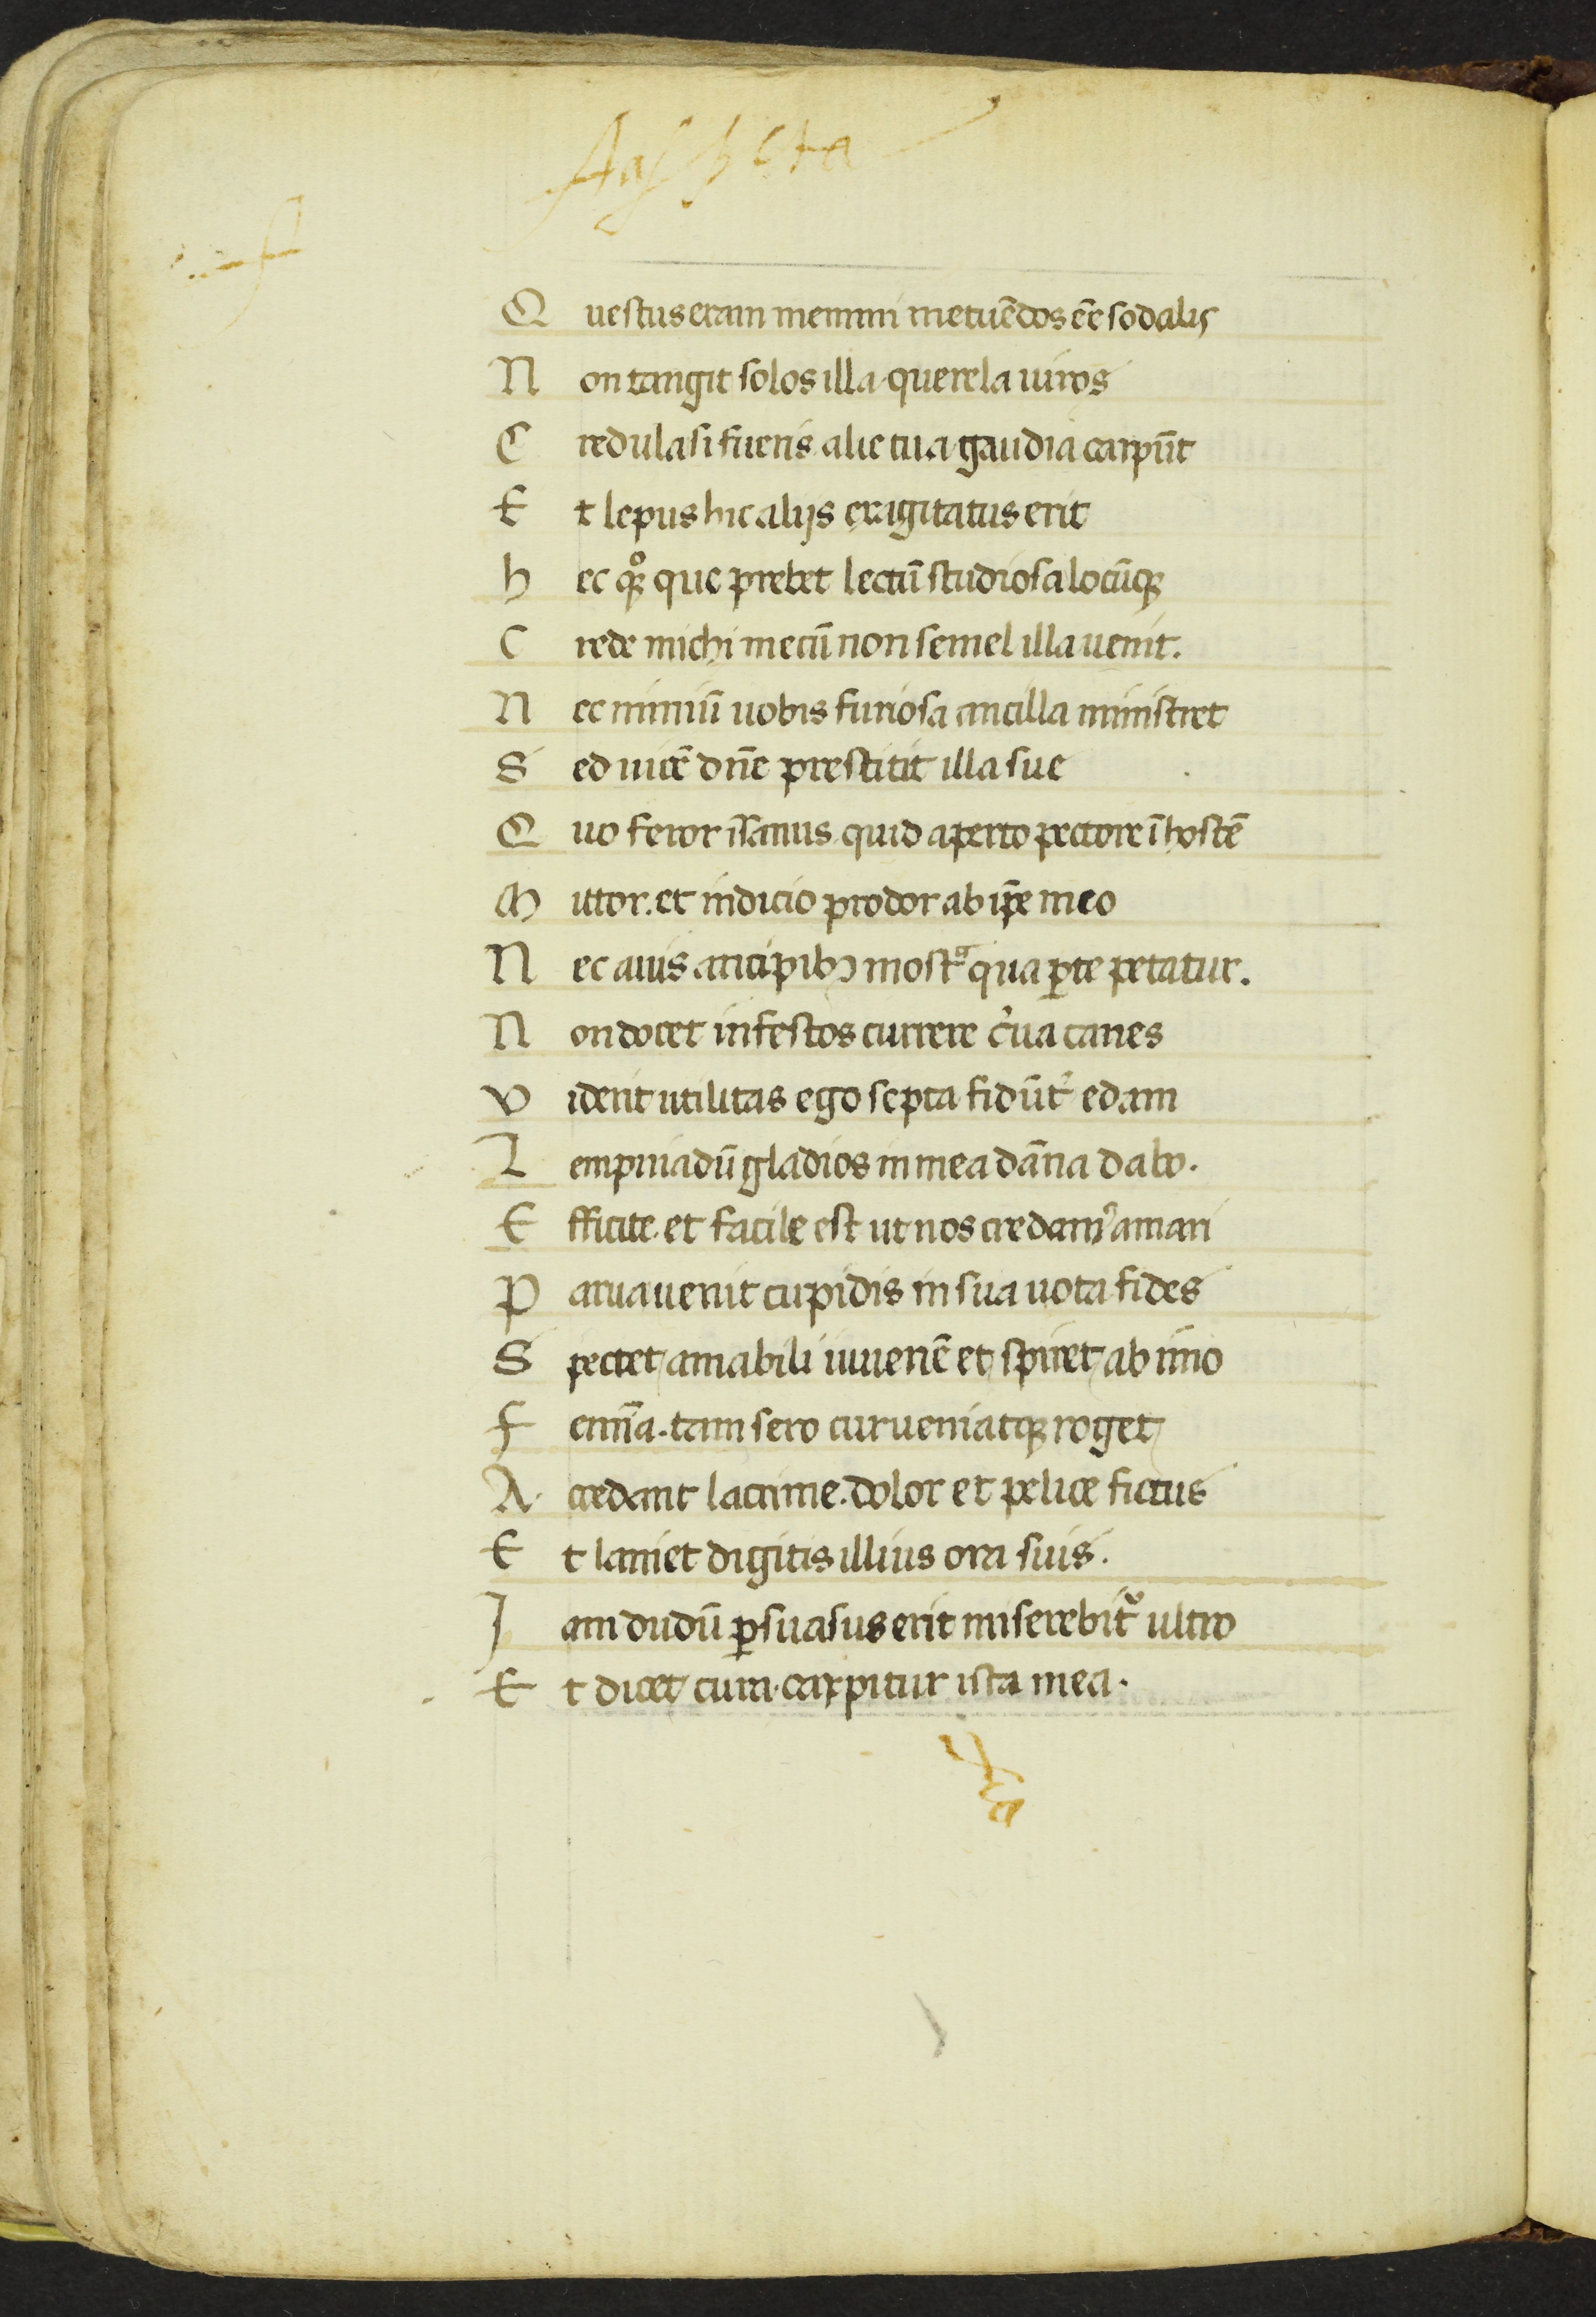 Q uestus eram memini metuēdos eē sodalis
N on tangit solos illa querela uiros
C redula si fueris alie tua gaudia carpūt
E t lepus hic alijs exigitatus erit
h ec qꝫ que prebet lectū studiosa locūqꝫ
C rede michi mecū non semel illa uenit.
N ec nimiū uobis furiosa ancilla ministret
S ed uicē dn̄e prestitit illa sue
Q uo feror īsanus quid aperto pectore ī hostē
M ittor. et indicio prodor ab ip̄e meo
N ec auis ancipibꝫ mostᵃ qua ꝑte petatur.
N on docet infestos currere c̓ua canes
V iderit utilitas ego septa fidūt̓ edam
L empniadū gladios in mea dāna dabo.
E fficite. et facile est ut nos credam᾽ amari
P arua uenit cupidis in sua uota fides
S pectet amabili iuuenē et spiret ab imo
F emīa. tam sero cur ueniatqꝫ roget
A ccedant lacrime. dolor et pelice fictus
E t laniet digitis illius ora suis.
J am dudū ꝑsuasus erit miserebit᷑ ultro
E t dicet cura carpitur ista mea.